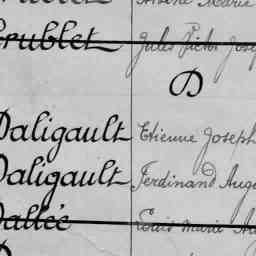 Marie
Grublet Jules Victor Jose
D
Daligault Etienne Joseph
Daligault Ferdinand Aug
Dallée Louis Marie Au